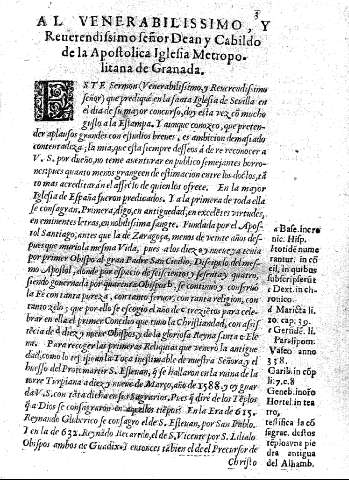 3
AL VENERABILISSIMO, Y
Reuerendissimo señor Dean y Cabildo
de la Apostolica Iglesia Metropo-
litana de Granada.
ESTE Sermon (Venerabilisimo, y Reuerendisimo
señor) que prediquè en la santa Iglesia de Seuilla en
el dia de su mayor concurso, doy esta vez cō mucho
gusto a la Estampa. Y aunque conozco, que preten-
der aplausos grandes con estudios breues, es ambicion demasiado
contentadiza; la mia, que esta siempre desseosa de reconocer a
V. S. por dueño, no teme auenturar en publico semejantes borro-
nes; pues quanto menos grangeen de estimacion entre los doctos, tā
to mas acreditaràn el afecto de quien los ofrece. En la mayor
Iglesia de España fueron predicados. Y a la primera de toda ella
se consagran. Primera, digo, en antiguedad, en excelētes virtudes,
en eminentes letras, en nobilissima sangre. Fundada por el Apos-
tol Santiago, antes que la de Zaragoza, menos de veinte años des-
pues que murio la mesma Vida, pues a los diez y nueue, ya tenia
por primer Obispo al gran Padre San Cecilio, Discipulo del mes-
mo Apostol, donde por espacio de seiscientos y sesenta y quatro,
siendo gouernada por quarenta Obispos, se continuò y conseruò
la Fè con tanta pureza, con tanto feruor, con tanta religion, con
tanto zelo; que por ello se escogio el año de trezietos para cele-
brar en ella el primer Concilio que tuuo la Christiandad, con asis-
tēcia de diez y nueue Obispos, y de la gloriosa Reyna santa Ele-
na. Para recoger las primeras Reliquias que venerò la antigue-
dad, como lo testifican la Toca inestimable de nuestra Señora, y el
huesso del Protomartir S. Esteuan, q̄ se hallaron en la ruina de la
torre Turpiana a diez y nueue de Março, año de 1588. y oy guar-
da V. S. con tāta dicha en sus Sagrarios. Pues q̄ dirè de los Tēplos
q̄ a Dios se consagraron en aquellos tiēpos? En la Era de 615.
Reynando Gluberico se consagro el de S. Esteuan, por San Pablo.
I en la de 632. Reynādo Recaredo, el de S. Vicente por S. Lilialo
Obispos ambos de Guadix. I entonces tābien el de el Precursor de
Christo
a Base. in cro
nic. Hisp.
Flotide nume
rantur. in cō
cil, in quibus
subscripserūt
c Dext. in ch
ronico.
d Maricta li.
20. cap. 39.
e Gerundē. li.
Paralipom.
Vaseo anno
338.
Garib. in cōp
li: 7. c. 8
Geneb. in ofro
Hortel. in tea
tro,
testifica la cō
sagrac. destos
tēplos vna pie
dra antigua
del Alhamb.